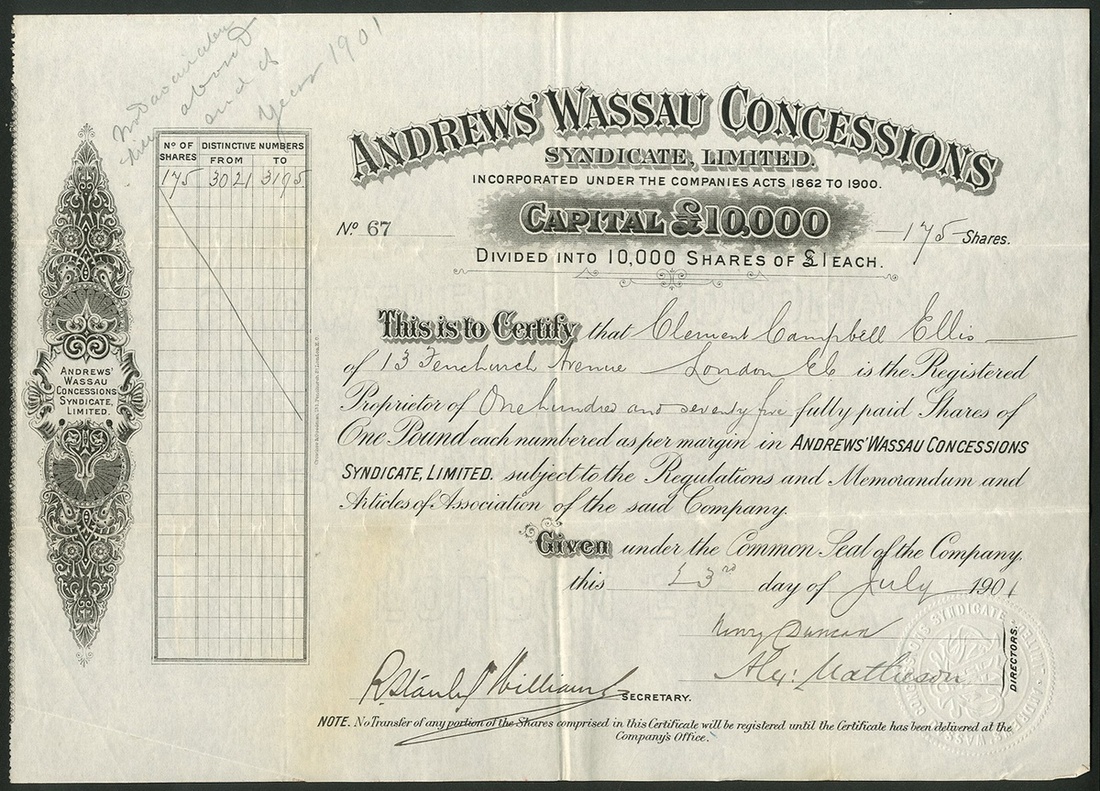 above
end of
Year 1901
ANDREWS' WASSAU CONCESSIONS
SYNDICATE, LIMITED.
INCORPORATED UNDER THE COMPANIES ACTS 1862 TO 1900.
Nº 67
CAPITAL £10,000
175 Shares.
DIVIDED INTO 10,000 SHARES OF £1 EACH.
Nº OF SHARES
DISTINCTIVE NUMBERS
FROM TO
175 3021 3195
ANDREWS'
WASSAU
CONCESSIONS
SYNDICATE,
LIMITED.
This is to Certify that Clement Campbell Ellis
of 13 Fenchurch Avenue London E.C. is the Registered
Proprietor of One hundred and seventy five fully paid Shares of
One Pound each numbered as per margin in ANDREWS' WASSAU CONCESSIONS
SYNDICATE, LIMITED. subject to the Regulations and Memorandum and
Articles of Association of the said Company.
Given under the Common Seal of the Company,
this 23rd day of July 1901
Henry Duncan
Alex: Matheson
DIRECTORS.
R Stanley Williams
SECRETARY.
NOTE. No Transfer of any portion of the Shares comprised in this Certificate will be registered until the Certificate has been delivered at the
Company's Office.